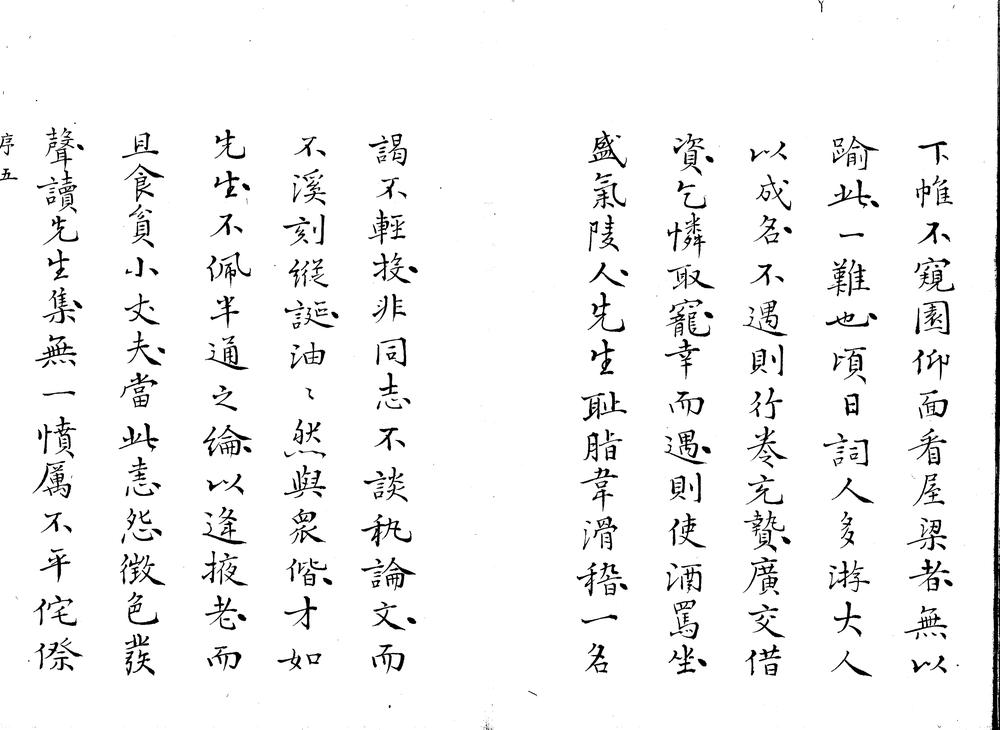 下帷不窺園仰面看屋梁者無以
踰此一難也頃日詞人多游大人
以成名不遇則行卷充贄廣交借
資乞憐取寵幸而遇則使酒罵坐
盛氣陵人先生恥脂韋滑稽一名
謁不輕投非同志不談秇論文而
不溪刻縱誕油〻然與衆偕才如
先生不佩半通之綸以逢掖老而
且食貧小丈夫當此恚怨徵色發
聲讀先生集無一憤厲不平侘傺
序五